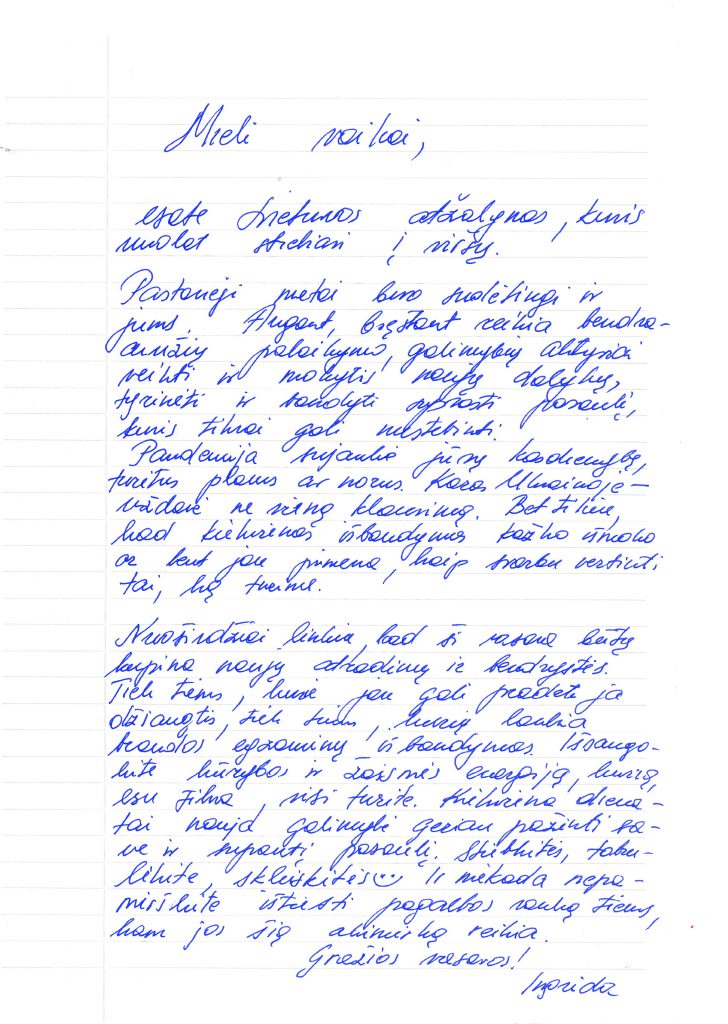 Mieli vaikai,
esate Lietuvos atžalynas, kuris
nuolat stiebiasi į viršų.
Pastarieji metai buvo sudėtingi ir
jums. Augant, bręstant reikia bendra-
amžių palaikymo, galimybių aktyviai
veikti ir mokytis naujų dalykų,
tyrinėti ir bandyti suprasti pasaulį,
kuris tikrai gali nustebinti.
Pandemija sujaukė jūsų kasdienybę,
turėtus planus ar norus. Karas Ukrainoje –
uždavė ne vieną klausimą. Bet tikiu,
kad kiekvienas išbandymas kažko išmoko
ar bent jau primena, kaip svarbu vertinti
tai, ką turime.
Nuoširdžiai linkiu, kad ši vasara būtų
kupina naujų atradimų ir bendrystės.
Tiek tiems, kurie jau gali pradėti ja
džiaugtis, tiek tiems, kurių laukia
brandos egzaminų išbandymas. Išsaugo-
kite kūrybos ir žaismės energiją, kurią,
esu tikra, visi turite. Kiekviena diena –
tai nauja galimybė geriau pažinti sa-
ve ir suprantį pasaulį. Stiebkitės, tobu-
lėkite, skleiskitės ☺ Ir niekada nepa-
mirškite ištiesti pagalbos ranką tiems,
kam jos šią akimirką reikia.
Gražios vasaros!
Ingrida